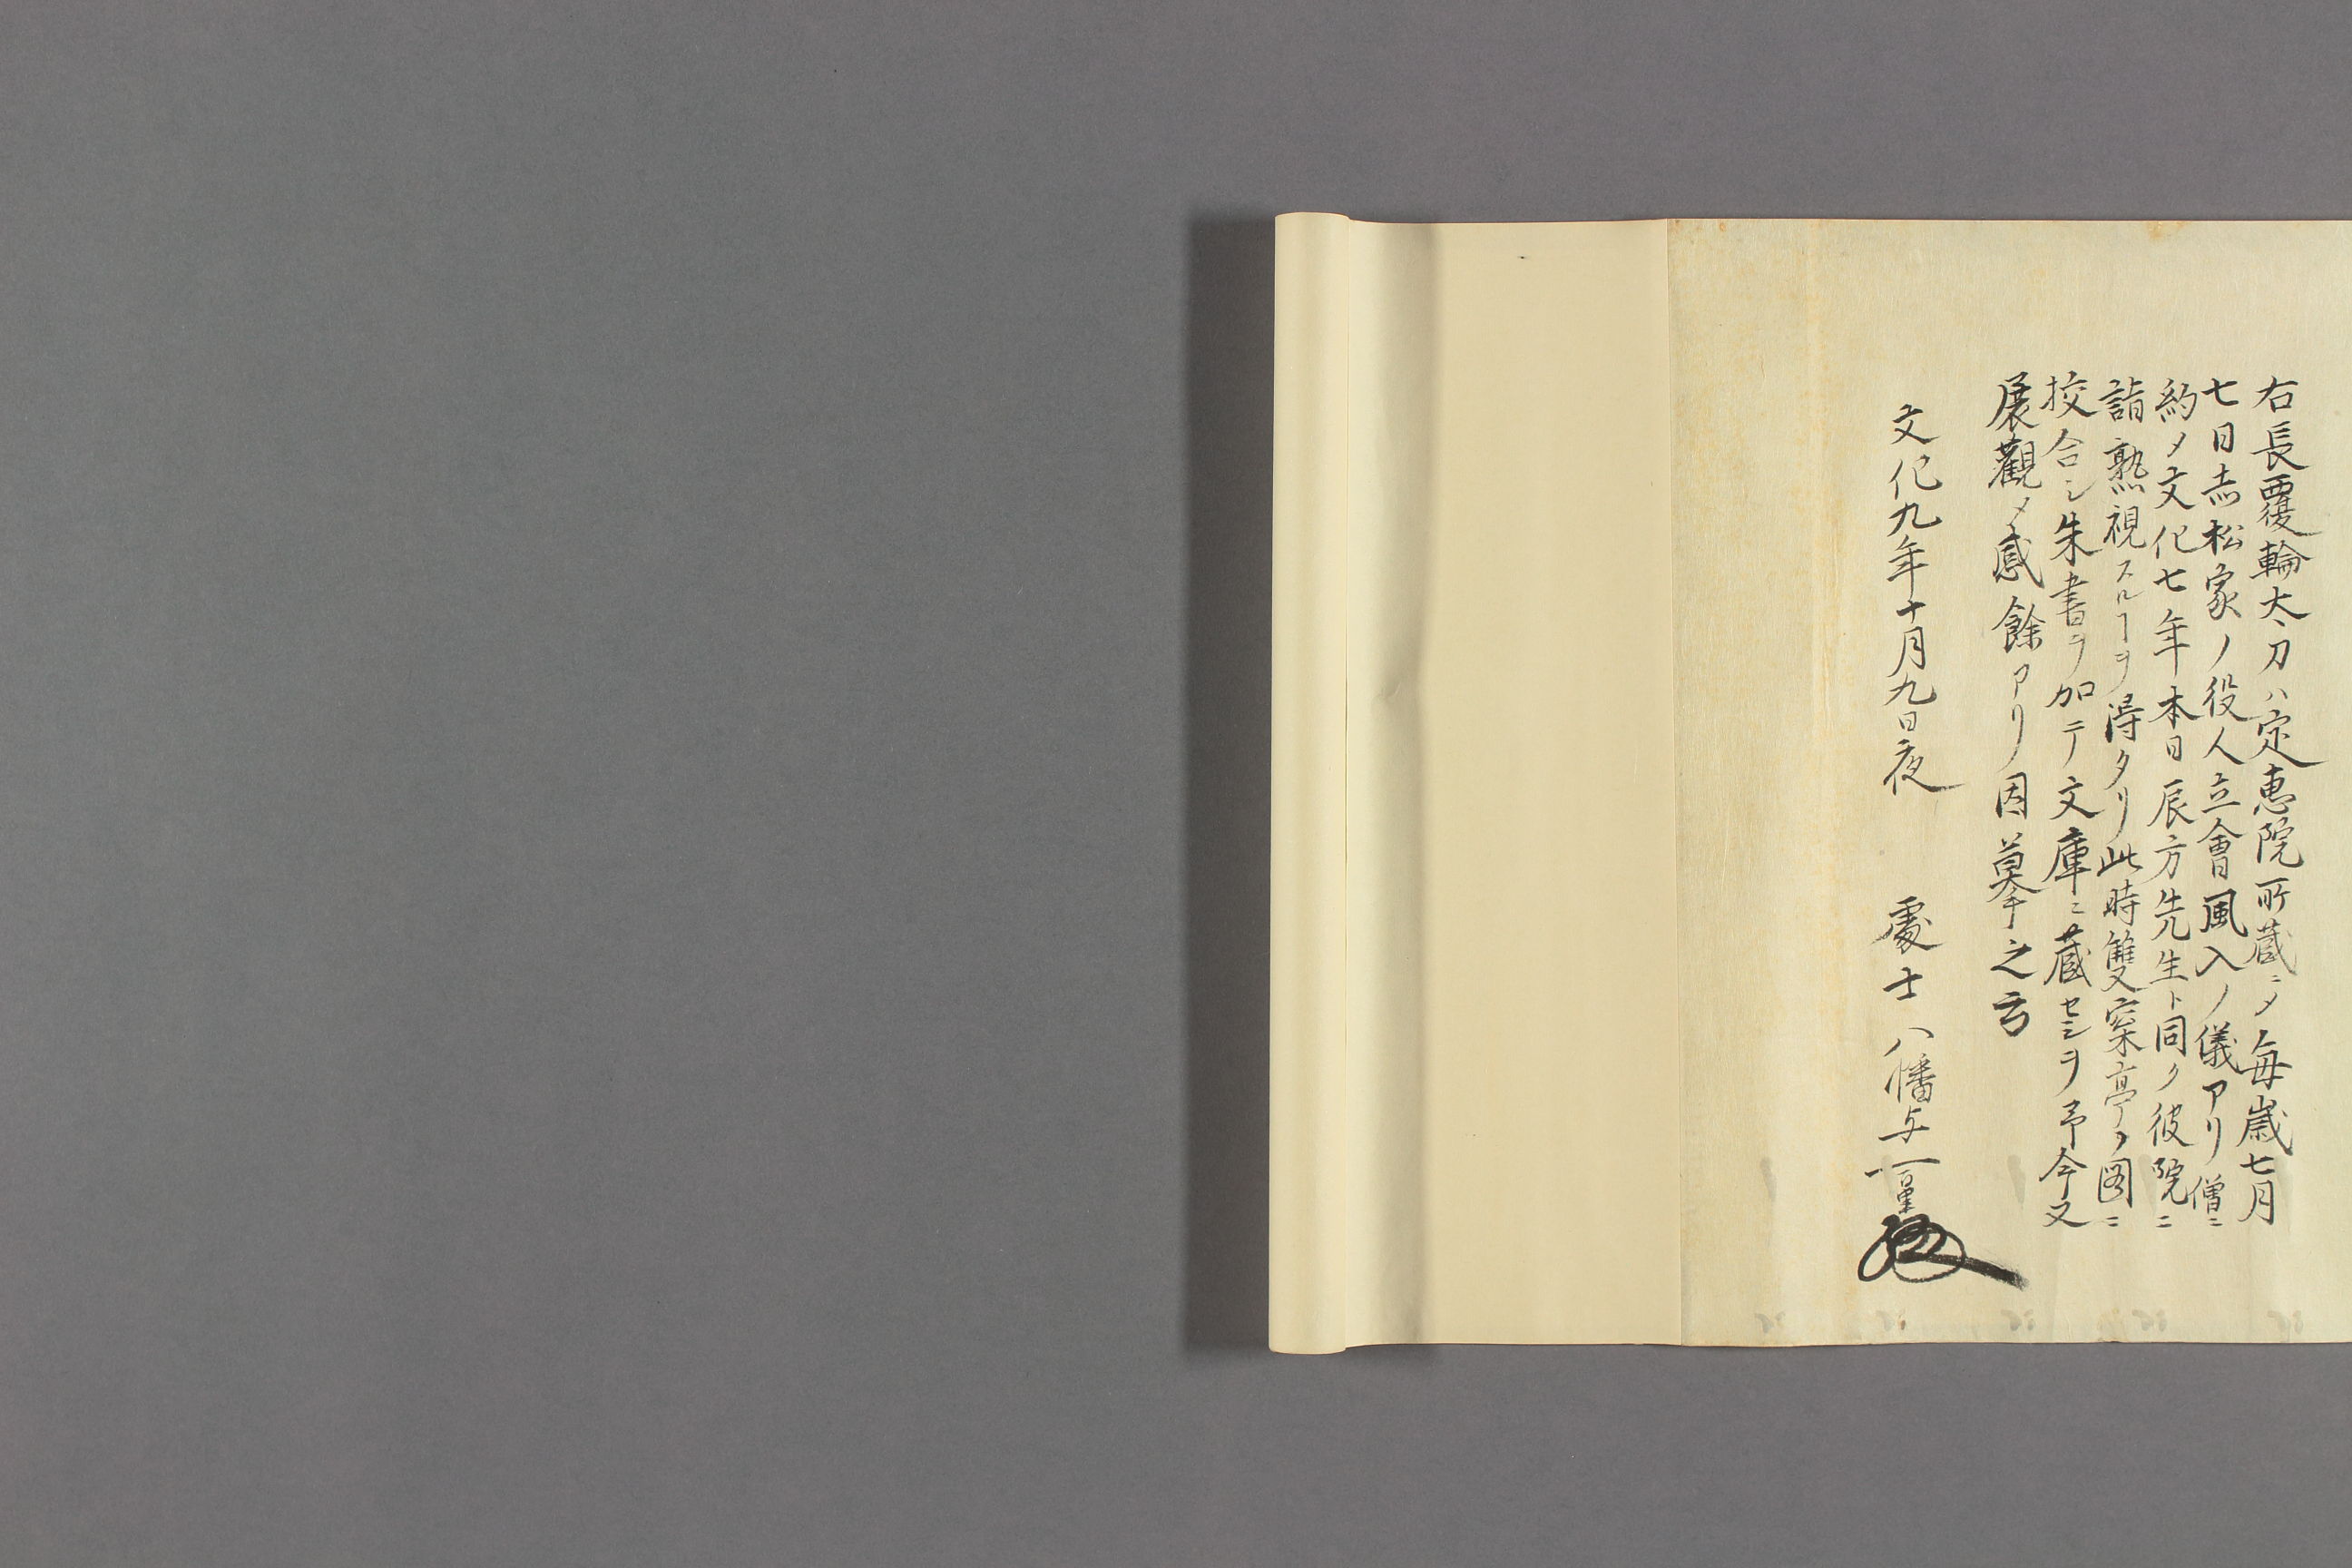 右長覆輪太刀ハ定恵院所蔵ニメ毎歳七月
七日赤松家ノ役人立會風入ノ儀アリ僧ニ
約メ文化七年本日辰方先生ト同ク彼院ニ
詣熟視スルヿヲ得タリ此時雙案亭ノ図ニ
挍合シ朱書ヲ加テ文庫ニ蔵セシヲ予今又
展觀メ感餘アリ因摹之云
文化九年十月九日夜
處士八幡与一